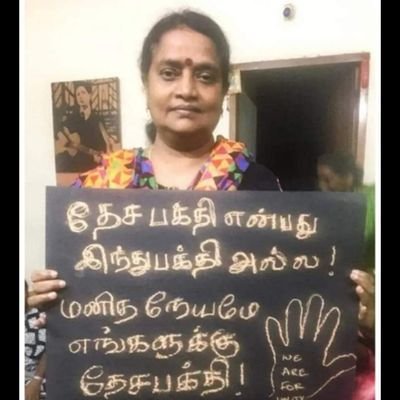 தேச பக்தி என்பது
இந்துபக்தி அல்ல!
மனித நேயமே
எங்களுக்கு
தேசபக்தி!
WE
ARE
FOR
UNITY